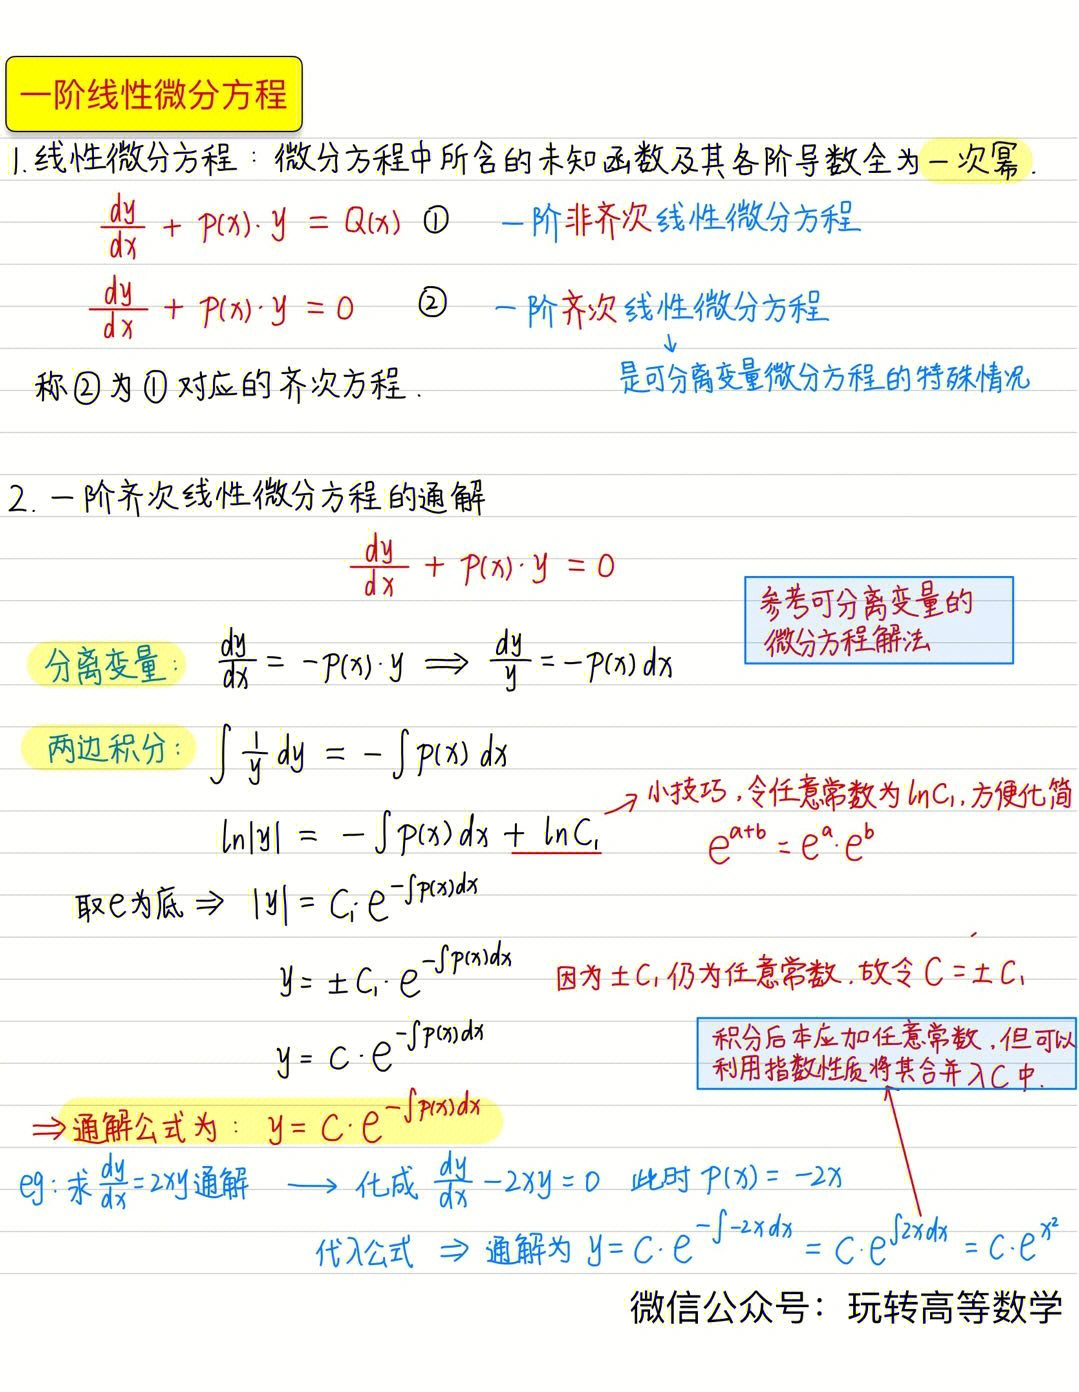 一阶线性微分方程
1. 线性微分方程：微分方程中所含的未知函数及其各阶导数全为一次幂.
dy/dx + p(x)·y = Q(x) ① 一阶非齐次线性微分方程
dy/dx + p(x)·y = 0 ② 一阶齐次线性微分方程
↓
称②为①对应的齐次方程. 是可分离变量微分方程的特殊情况
2. 一阶齐次线性微分方程的通解
dy/dx + p(x)·y = 0
参考可分离变量的
微分方程解法
分离变量: dy/dx = -p(x)·y ⟹ dy/y = -p(x)dx
两边积分: ∫ 1/y dy = -∫p(x) dx
→ 小技巧,令任意常数为lnC₁,方便化简
ln|y| = -∫p(x)dx + lnC₁ e^(a+b) = e^a·e^b
取e为底 ⇒ |y| = C₁·e^(-∫p(x)dx)
y = ±C₁·e^(-∫p(x)dx) 因为±C₁仍为任意常数,故令C=±C₁
y = C·e^(-∫p(x)dx)
积分后本应加任意常数,但可以
利用指数性质将其合并入C中.
⇒ 通解公式为: y = C·e^(-∫p(x)dx)
eg: 求 dy/dx = 2xy 通解 ⟶ 化成 dy/dx - 2xy = 0 此时 p(x) = -2x
代入公式 ⇒ 通解为 y = C·e^(-∫-2xdx) = C·e^(∫2xdx) = C·e^(x²)
微信公众号：玩转高等数学